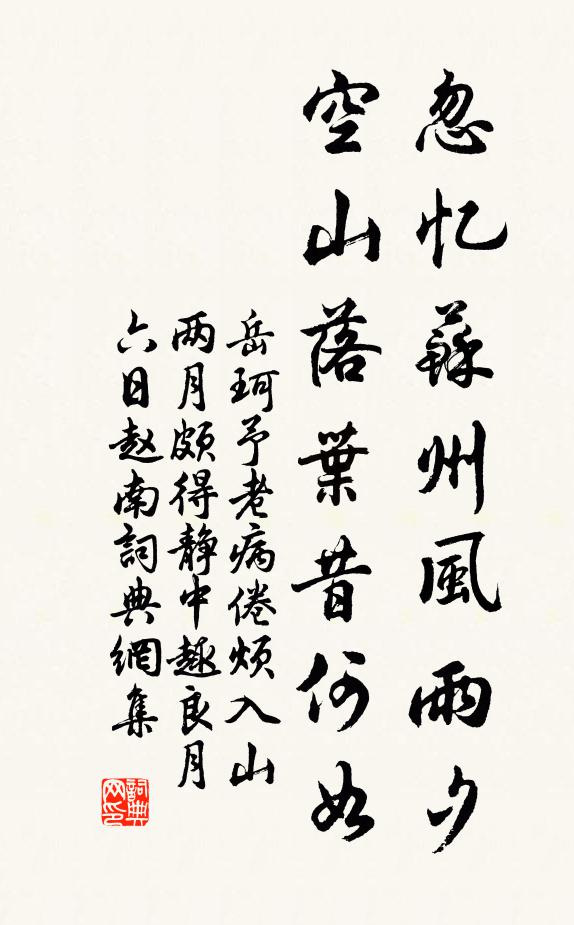 忽忆蘇州風雨夕
空山落葉昔何如
岳珂予老病倦烦入山
两月颇得静中趣良月
六日赵南詞典網集
詞典
网印